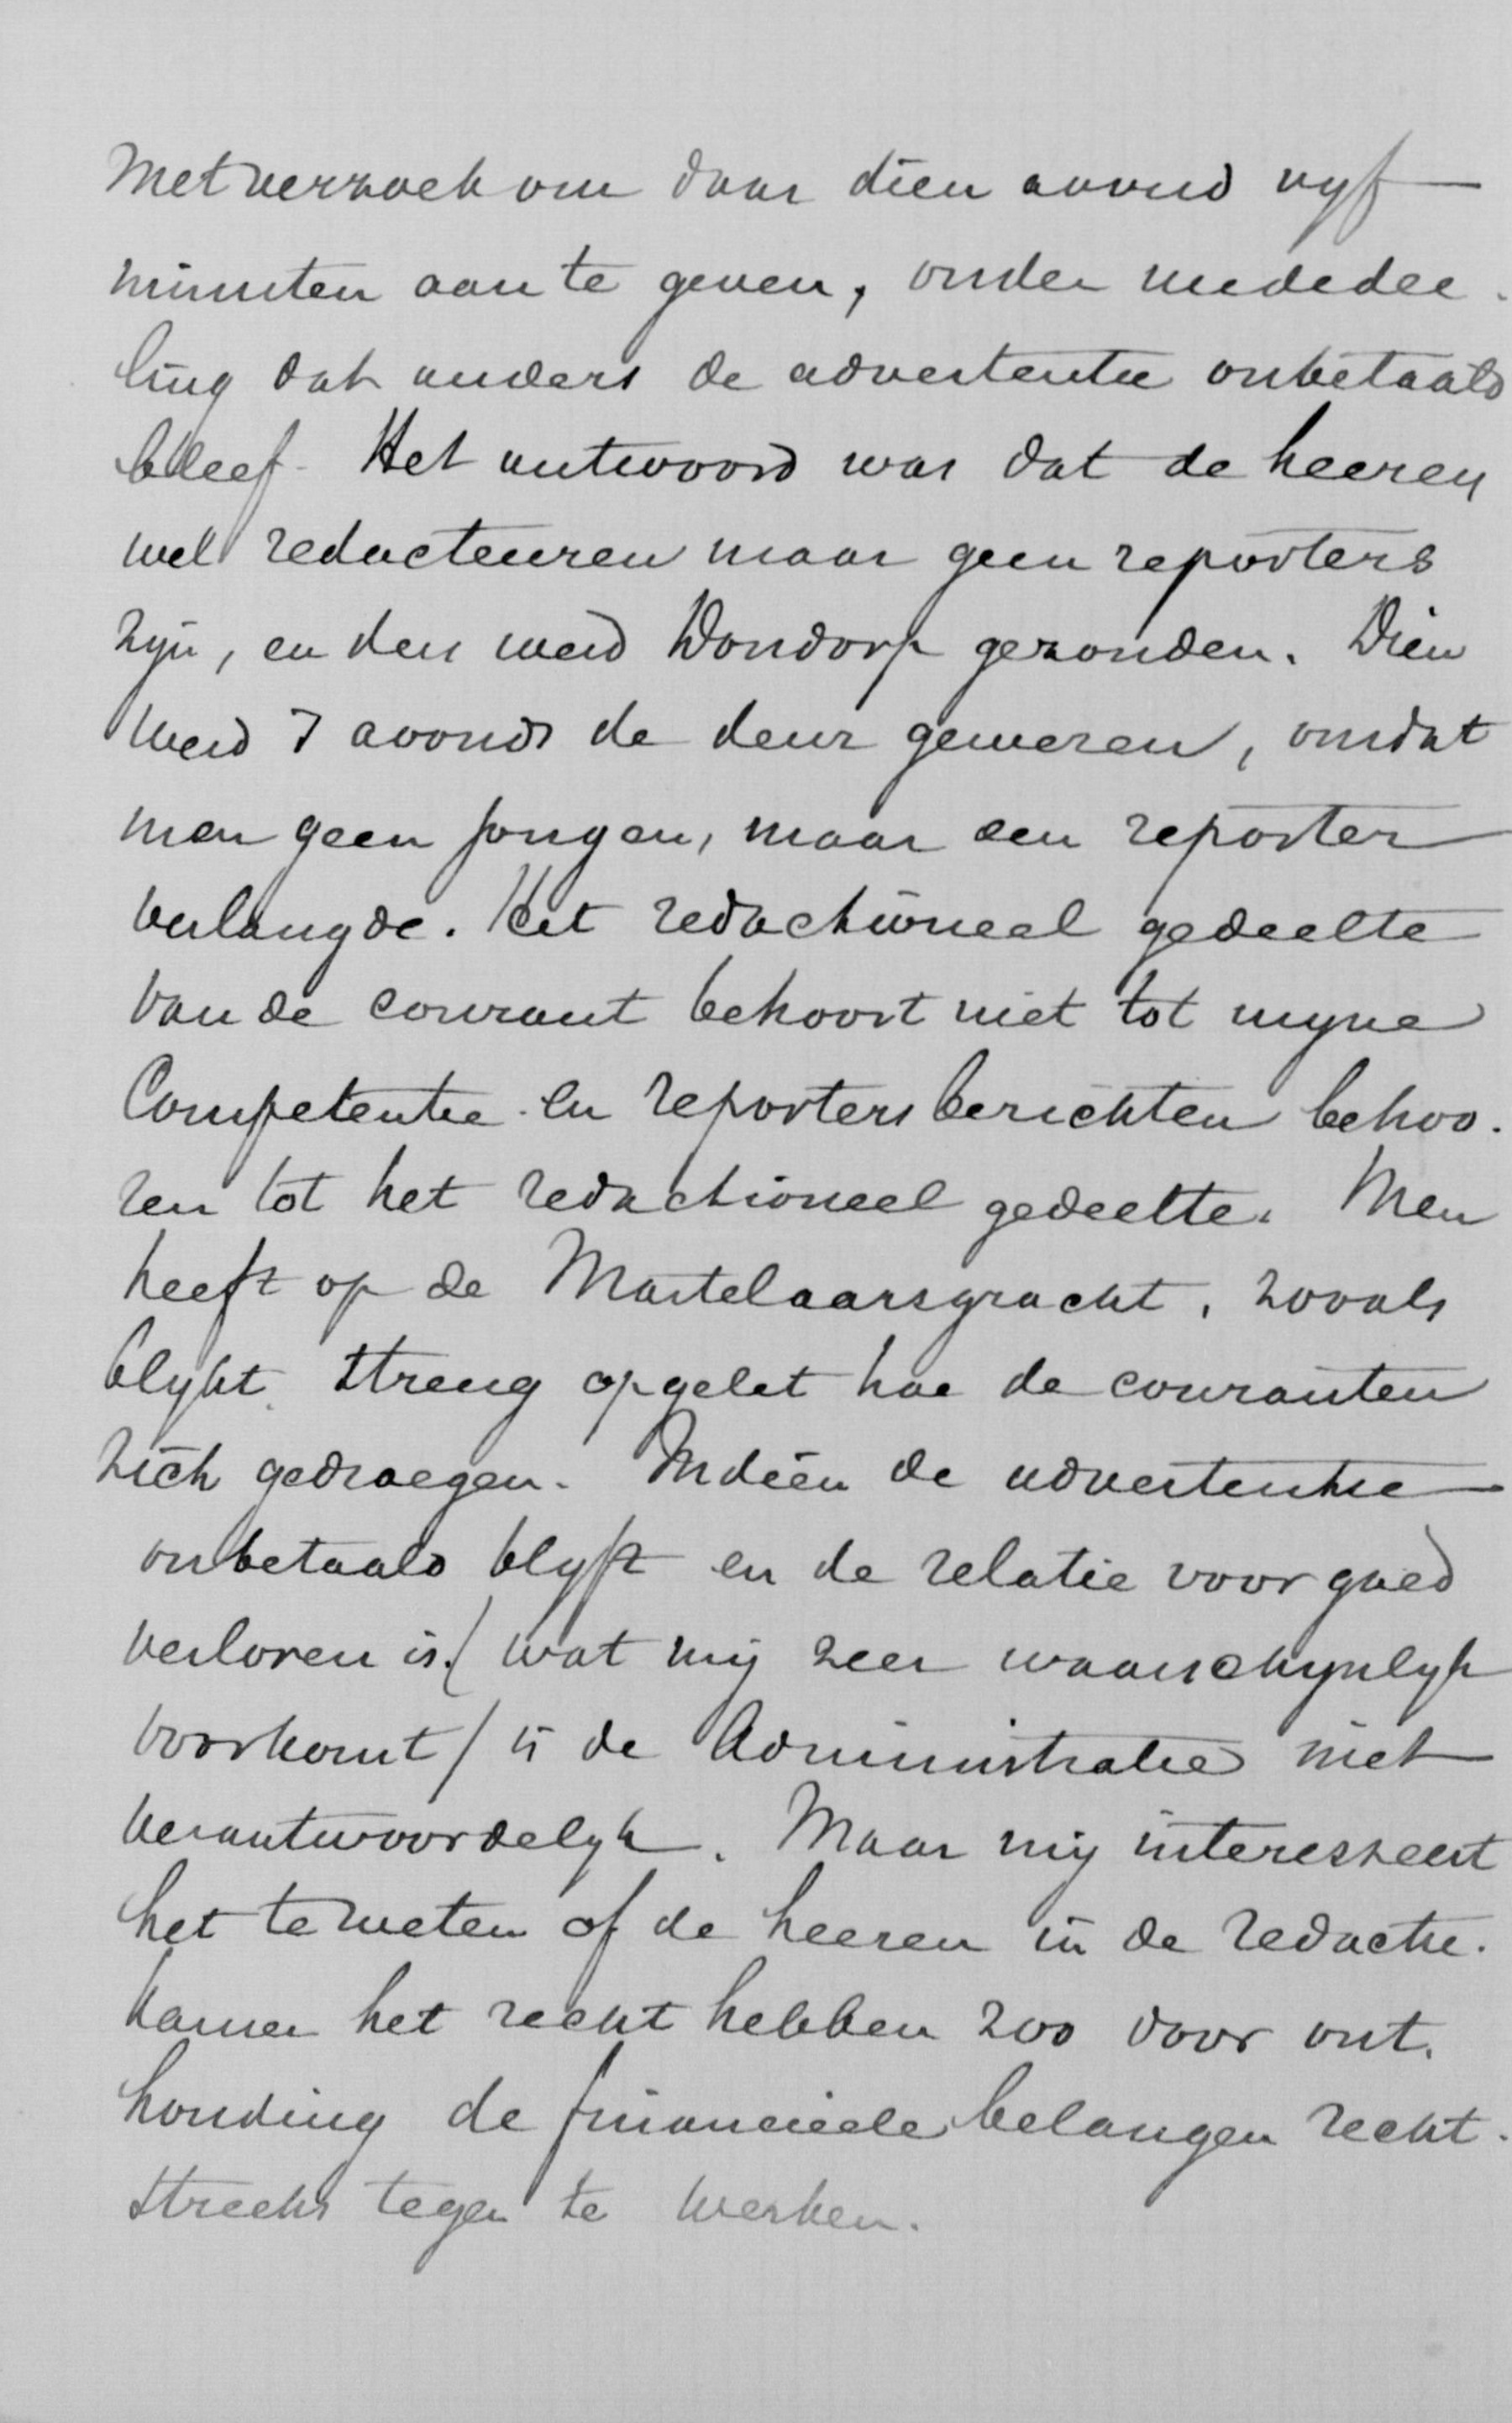 Met verzoek om daar dien avond vyf
minuten aan te geven, onder mededee-
ling dat anders de advertentie onbetaald
bleef. Het antwoord was dat de heeren
wel redacteuren maar geen reporters
zyn, en dus werd Wondorp gezonden. Dien
werd 's avonds de deur gewezen, omdat
men geen jongen, maar een reporter
verlangde. Het redactioneel gedeelte
van de courant behoort niet tot myne
Competentie en reporters berichten behoo-
ren tot het redactioneel gedeelte. Men
heeft op de Martelaarsgracht, zooals
blykt, streng opgelet hoe de couranten
zich gedraegen. Indien de advertentie
onbetaald blyft en de relatie voor goed
verloren is (wat mij zeer waarschynlyk
voorkomt) is de Administratie niet
verantwoordelyk. Maar mij interesseert
het te weten of de heeren in de redactie-
kamer het recht hebben zoo door ont-
houding de financieele belangen recht-
streeks tegen te werken.